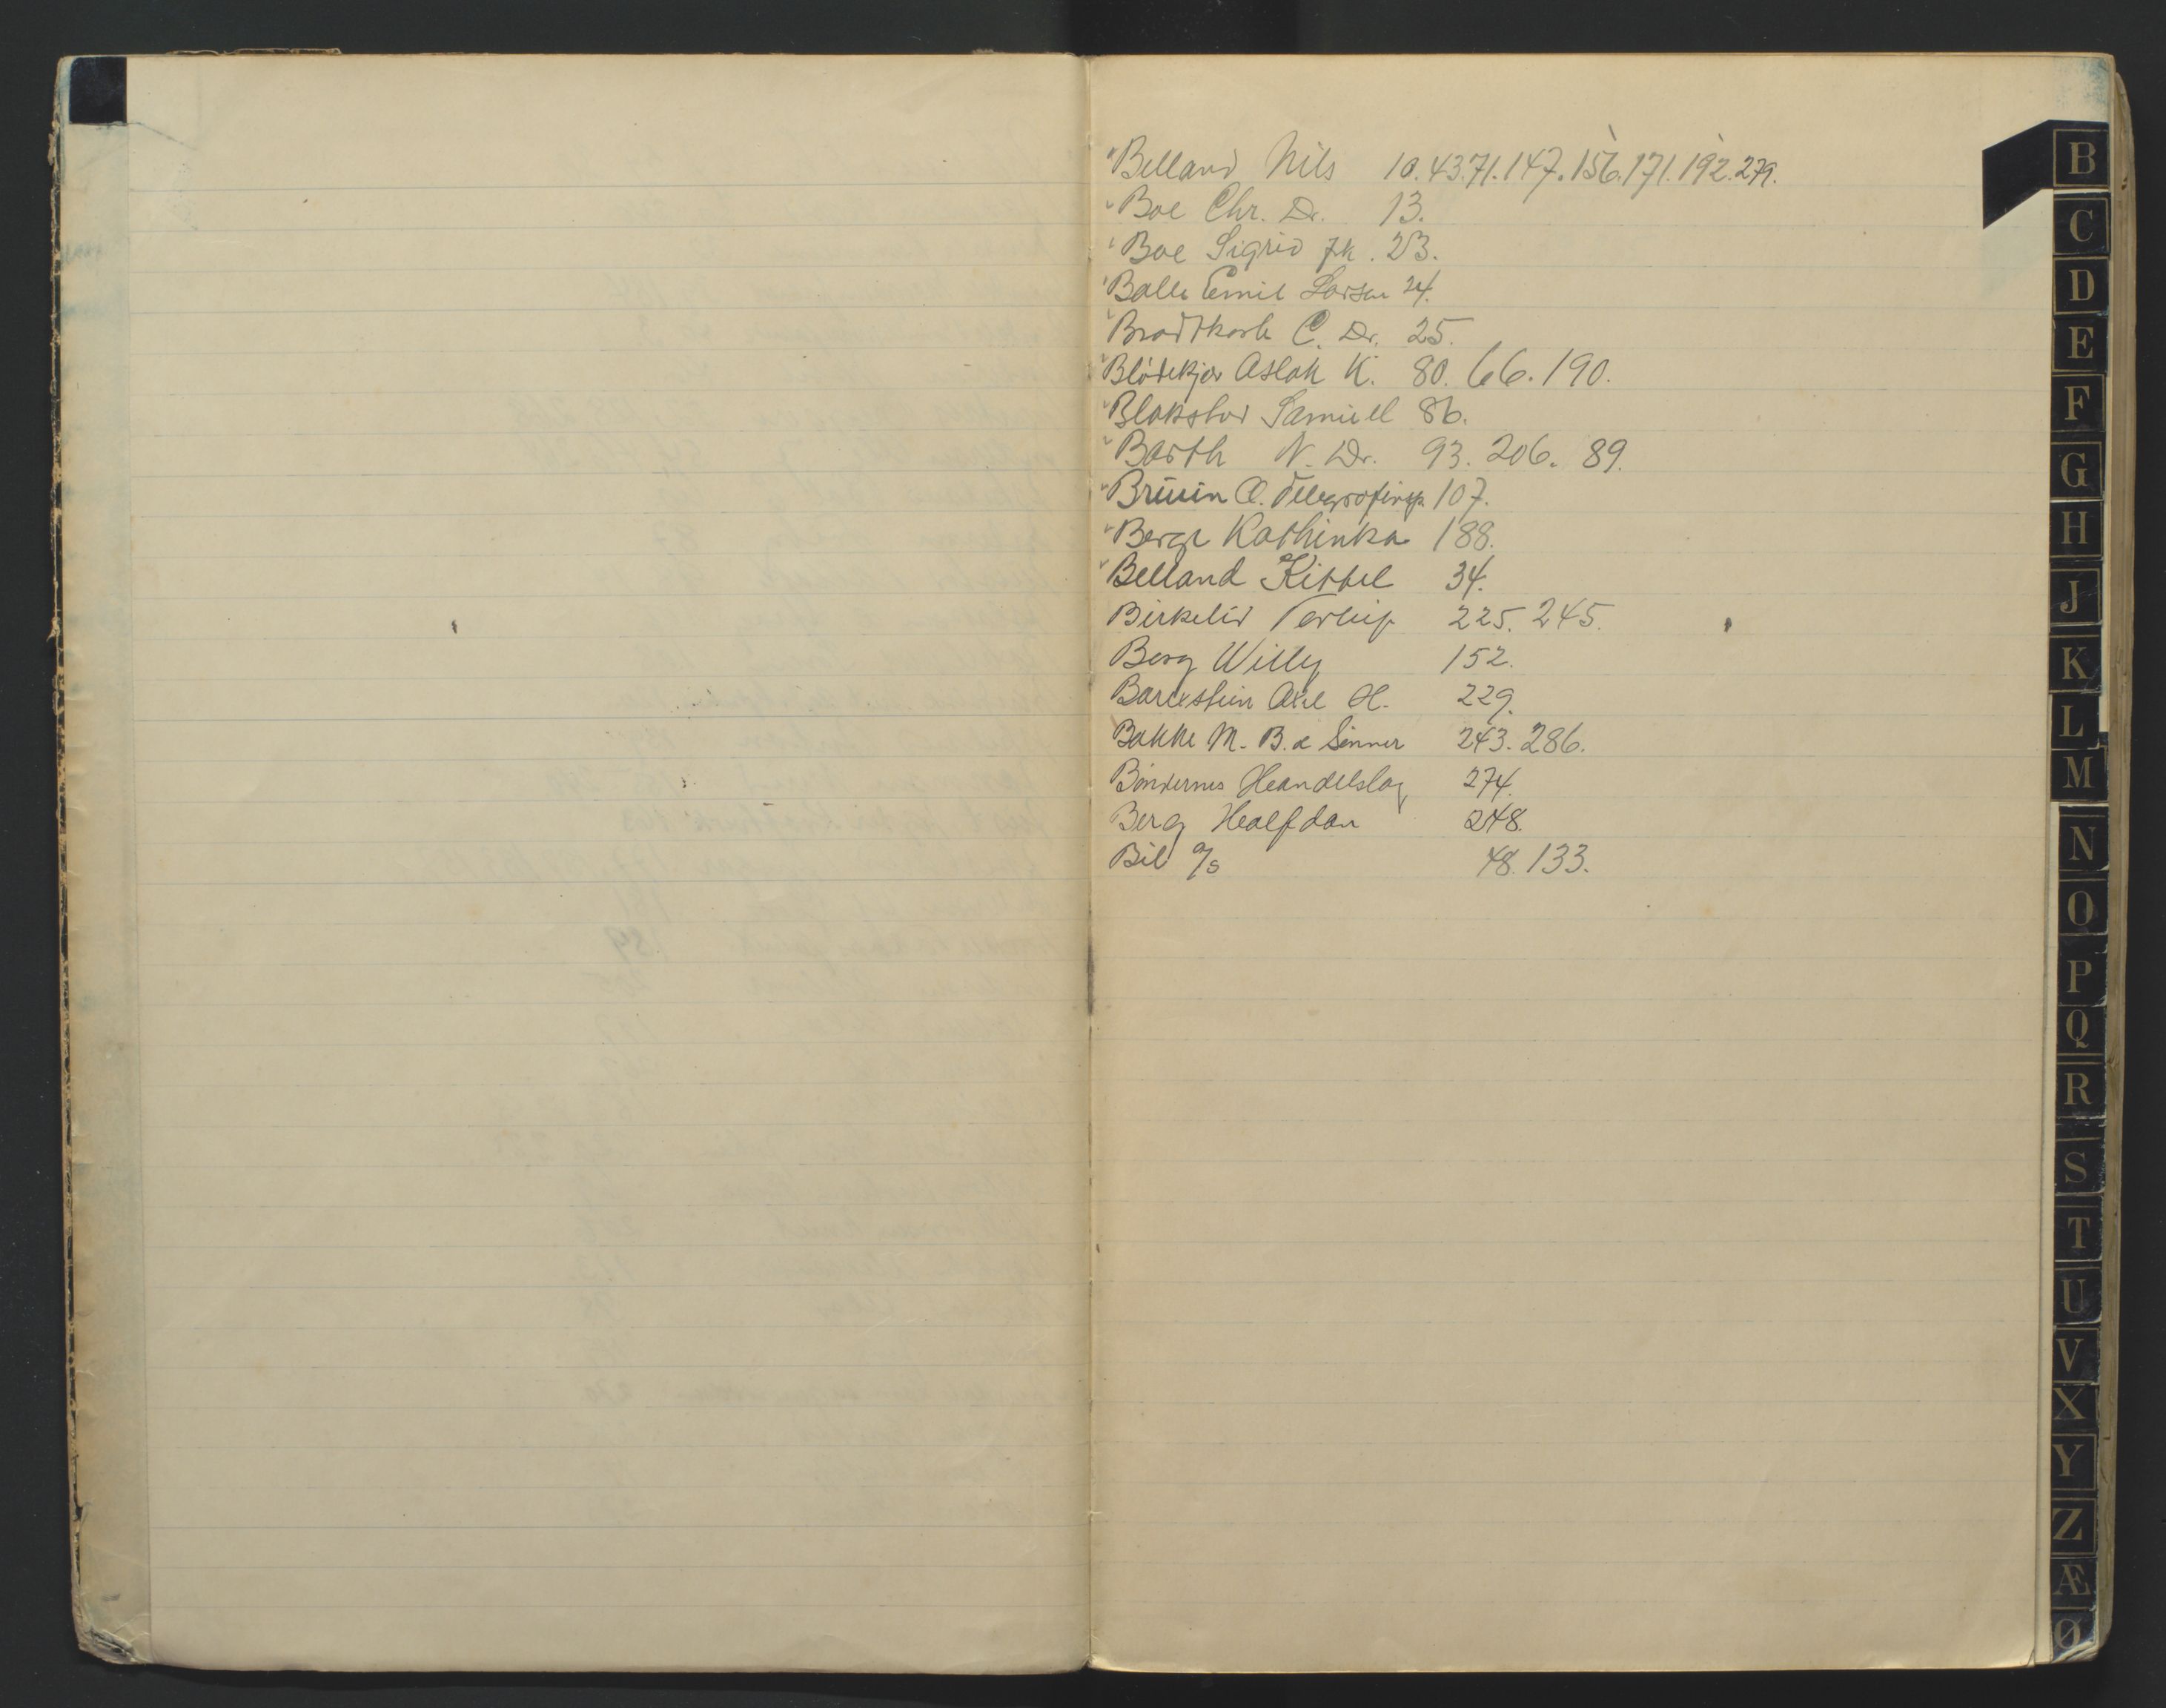 Belland Nils 10.43.71.147.156.171.192.279.
Boe Chr. Dr. 13.
Boe Sigrid frk. 23.
Balle Emil Larsen 24.
Brodtkorb C. Dr. 25.
Blödekjær Aslak K. 80. 66. 190.
Blakstad Samuel 86.
Barth N. Dr. 93. 206. 89.
Bruun O. Telegrafinsp. 107.
Berge Kathinka 188.
Belland Kittel 34.
Birkelid Terlup 225. 245.
Berg Willy 152.
Axel H. 229.
Bakke M. B. & Sönner 243. 286.
Böndernes Handelslag 274.
Berg Halfdan 248.
Bil a/s 48. 133.
B
C
D
E
F
G
H
J
K
L
M
N
O
P
Q
R
S
T
U
V
X
Y
Z
Æ
Ø